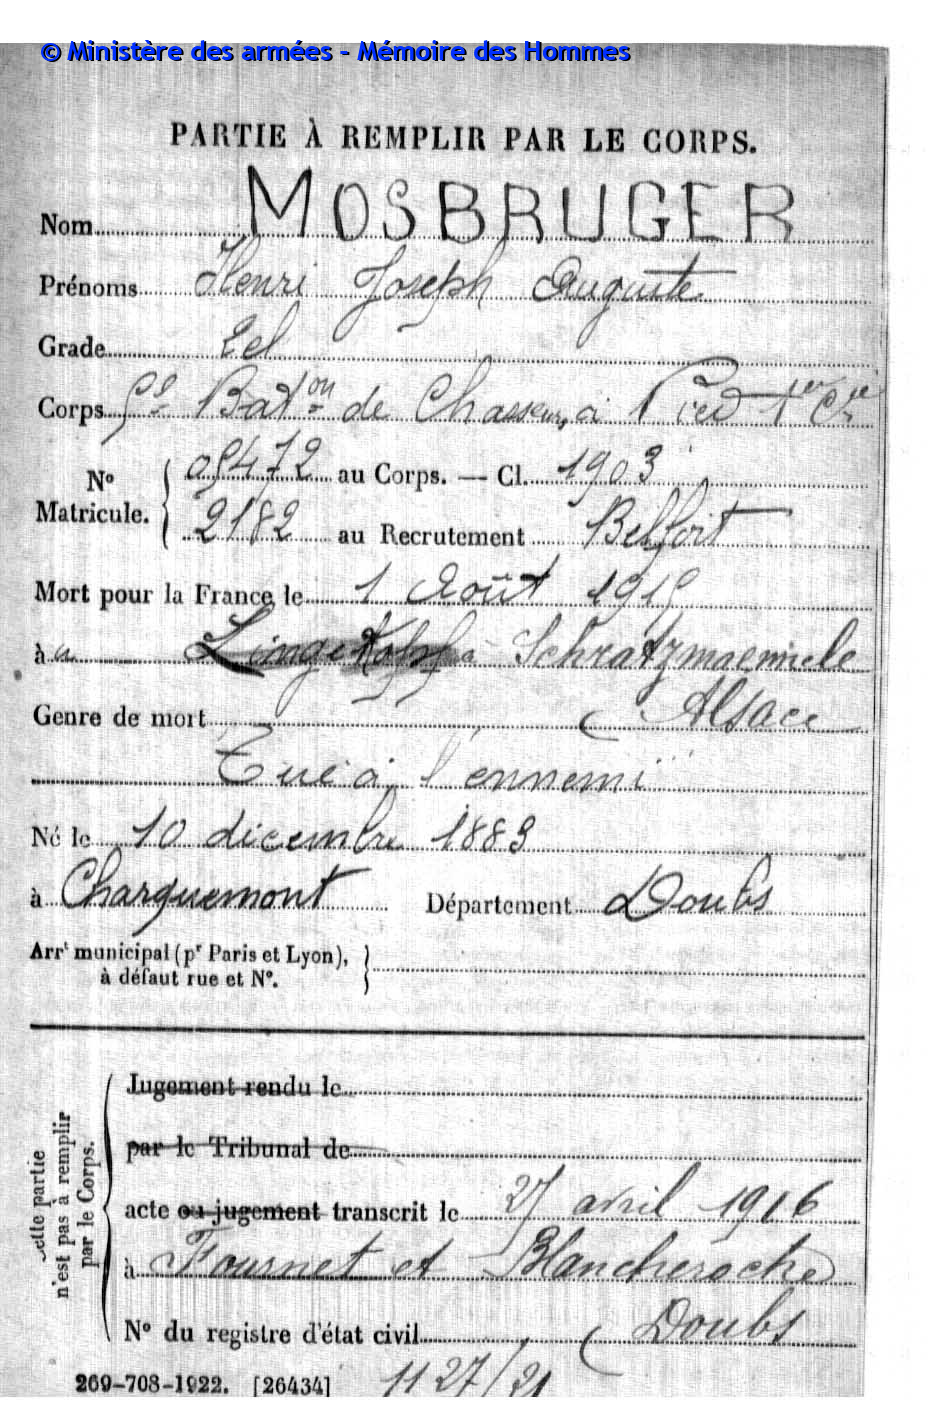 © Ministère des armées - Mémoire des Hommes
PARTIE À REMPLIR PAR LE CORPS.
Nom MOSBRUGER
Prénoms Henri Joseph Auguste
Grade
Corps Bat^on de Chasseurs à Pied 1^er C^ie
N° Matricule. 05472 au Corps. — Cl. 1903
2182 au Recrutement Belfort
Mort pour la France le 1 Août 1915
à Schratzmaennele
(Alsace
Genre de mort
Tué à l'ennemi
Né le 10 décembre 1883
à Charquemont Département Doubs
Arr^t municipal (p^r Paris et Lyon),
à défaut rue et N°.
Cette partie
n'est pas à remplir
par le Corps.
Jugement rendu le
par le Tribunal de
acte ou jugement transcrit le 27 avril 1916
à Fournet et Blancheroche
(Doubs
N° du registre d'état civil
269-708-1922. [26434] 1127/21